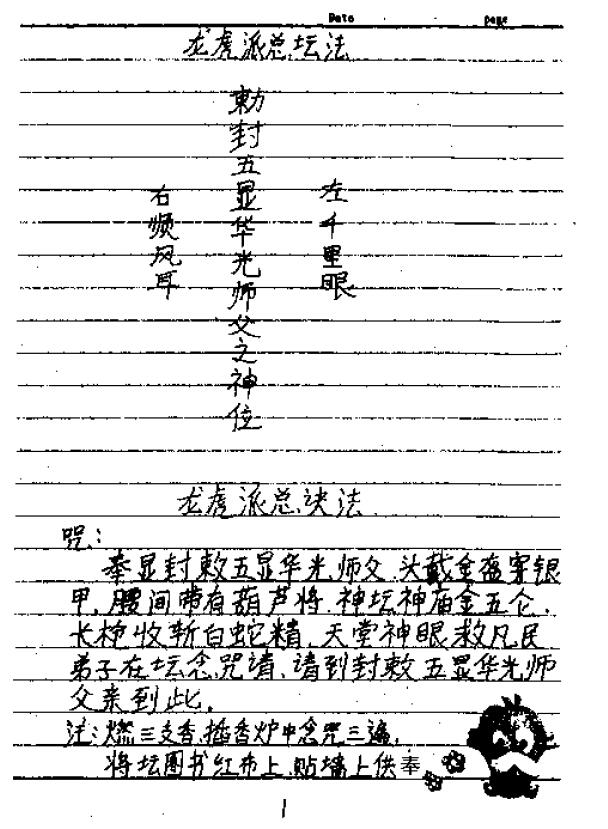 Date page
龙虎派总坛法
敕封五显华光师父之神位
左千里眼
右顺风耳
龙虎派总诀法
咒:
奉显封敕五显华光师父,头戴金盔穿银
甲,腰间带有葫芦将,神坛神庙金五仑,
长枪收斩白蛇精、天堂神眼救凡民
弟子在坛念咒请、请到封敕五显华光师
父亲到此。
注:燃三支香,插香炉中念咒三遍,
将坛图书红布上,贴墙上供奉
1